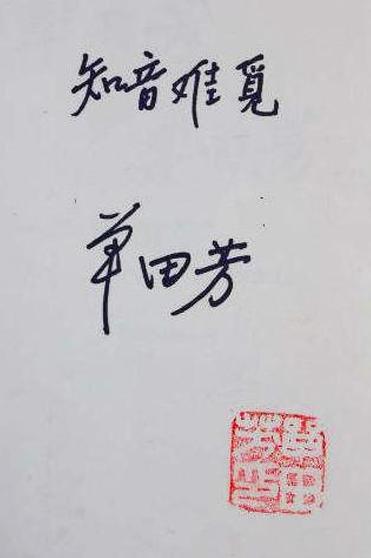 知音难觅
单田芳